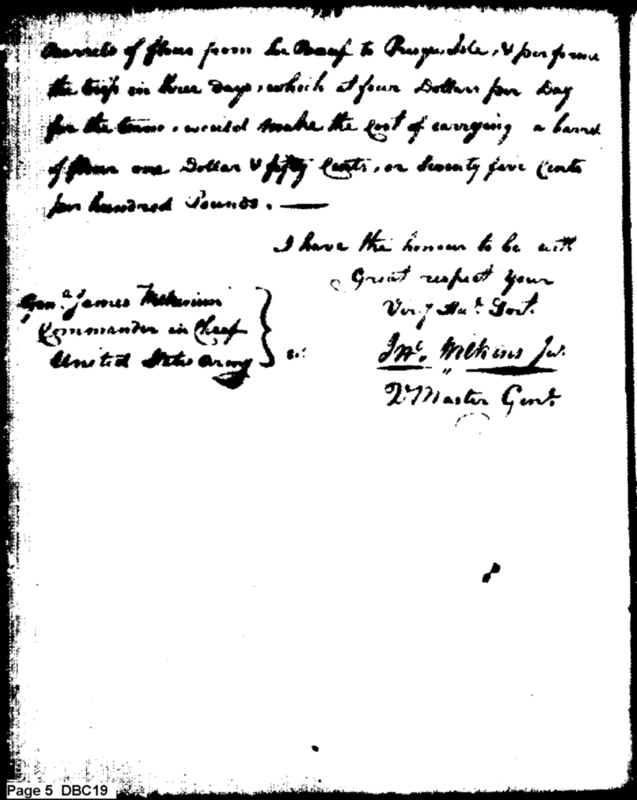 Barrels of flour from Le Beauf to Presqu, Isle, & performe
the trip in three days, which at four Dollars per Day
for the team, would make the Cost of carrying a barrel
of flour one Dollar & fifty Cents, or Seventy five Cents
per hundred Pounds. —
I have the honour to be with
Great respect your
Very Hue. Servt.
Jno. Wilkins Jr.
Qr Master Genl.
Genl. James Wilkinson
Commander in Cheef
United States Army
Page 5 DBC19